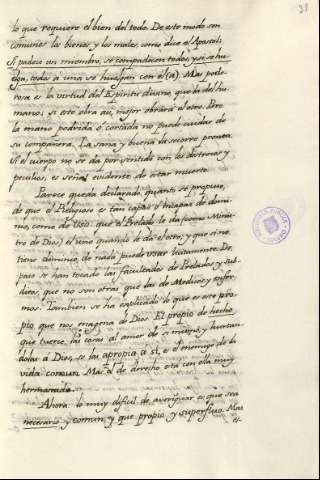 lo que requiere el bien del todo. De este modo son
comunes los bienes, y los males, como dice el Apostol:
Si padece un miembro, se compadecen todos, y si se hue
lga, todos a una se huelgan con el (a). Mas pode-
rosa es la virtud del Espiritu divino, que la del hu-
mano; si este obra asi, mejor obrará el otro. De
la mano podrida o cortada no puede cuidar de
su compañera. La sana y buena la socorre pronta.
Si el cuerpo no se da por sentido con los destrozos y
peculios, es señal evidente de estar muerto.
Parece queda declarado quanto se propuso,
de que el Religioso es tan capaz o incapaz de domi-
nio, como de uso: que el Prelado le da (como Minis-
tro de Dios) el uno quando le da el otro, y que si no
tiene dominio, de nada puede usar licitamente. Des-
pues se han tocado las facultades de Prelados y sub-
ditos, que no son otras que las de Medicos y enfer-
mos. Tambien se ha explicado lo que es ese pro-
pio, que nos enagena de Dios. El propio de hecho,
que tuerce las cosas al amor de si mismo, y hurtan-
dolas a Dios, se las apropia a sí, es el enemigo de la
vida comun. Mas el de derecho esta con ella muy
hermanado.
Ahora: lo muy dificil de averiguar es que sea
necesario y comun, y que propio y superfluo. Mas
es-